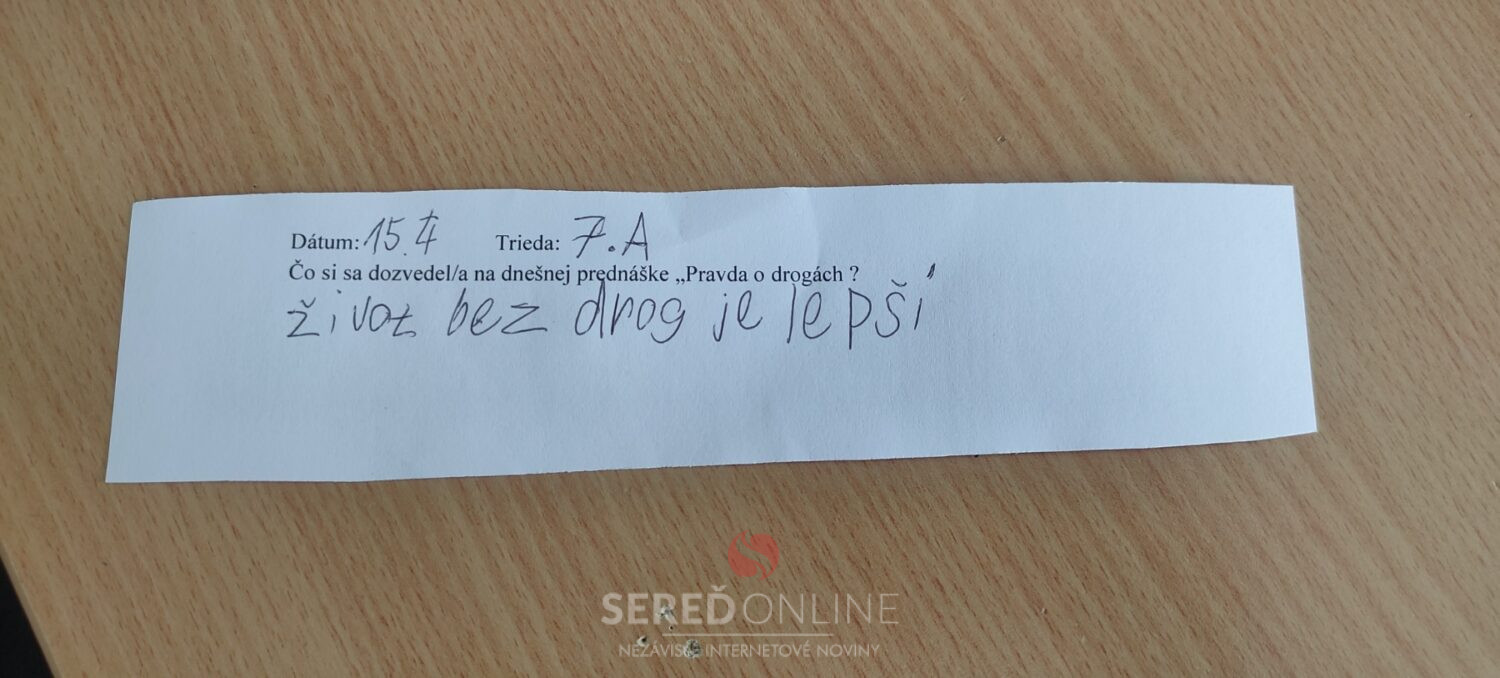 Dátum: 15.4 Trieda: 7.A
Čo si sa dozvedel/a na dnešnej prednáške „Pravda o drogách ?
život bez drog je lepší
SEREĎONLINE
NEZÁVISLÉ INTERNETOVÉ NOVINY